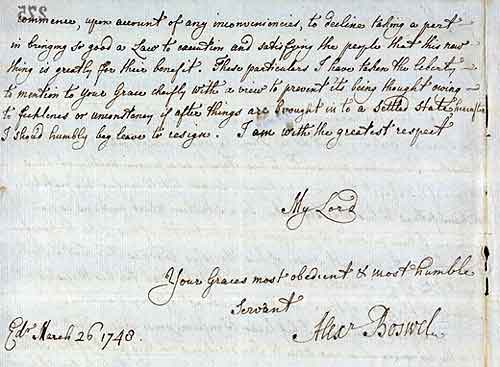 275
commence, upon account of any inconveniencies, to decline taking a part
in bringing so good a Law to execution and satisfying the people that this new
thing is greatly for their benefit. These particulars I have taken the liberty
to mention to your Grace chiefly with a view to prevent its being thought owing
to fickleness or unconstancy if after things are brought in to a settled state hereafter
I should humbly beg leave to resign. I am with the greatest respect
My Lord
Your Graces most obedient & most humble
Servant
Edr. March 26 1748.
Alexr Boswel